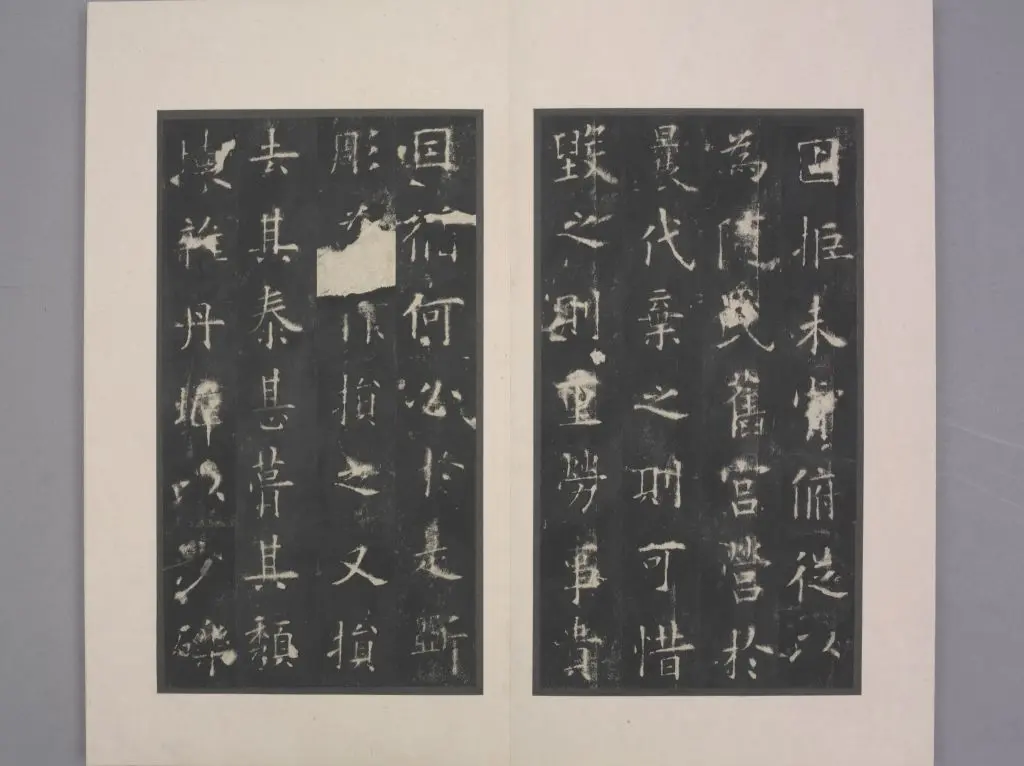 固拒未肯俯從以
為隨氏舊宮營於
曩代棄之則可惜
毀之則重勞事貴
因循何必於是斵
彫作損之又損
去其泰甚葺其頹
壞雜丹墀以沙礫